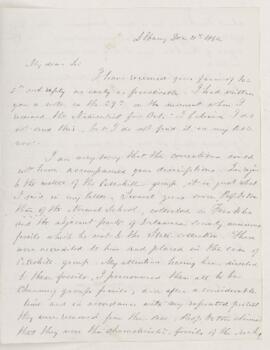 Albany Dec 11th 1862
My dear Sir
I have received your favor of Dec
5th and reply as early as practicable. I had written
you a note, on the 29th in the moment when I
received the Naturalist for Oct. I believe I do
not send this, but I do not find it on my table
now.
I am very sorry that the corrections could
not have accompanied your descriptions. In regard
to the matter of the Catskill group, it is just what
I said in my letter. Several years since Professor
of the Normal School, collected in Franklin
and the adjacent parts of Delaware County numerous
fossils which he sent to the State collection. These
were accredited to him and placed in the case of
Catskill group. My attention having been directed
to these fossils, I pronounced them all to be
Chemung group fossils, and after a considerable
time and in accordance with my repeated protest
they were removed from the case,
that they were the characteristic fossils of the rocks